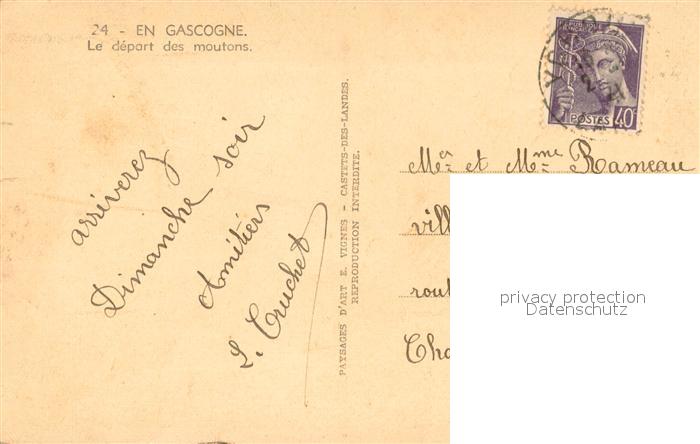 24 - EN GASCOGNE.
Le départ des moutons.
arriverez
Dimanche soir
Amitiés
L. Cruchet
PAYSAGES D'ART E. VIGNES - CASTETS-DES-LANDES.
REPRODUCTION INTERDITE.
POSTES 40c
Mr et Mme Rameau
vill
rout
Cha
privacy protection
Datenschutz